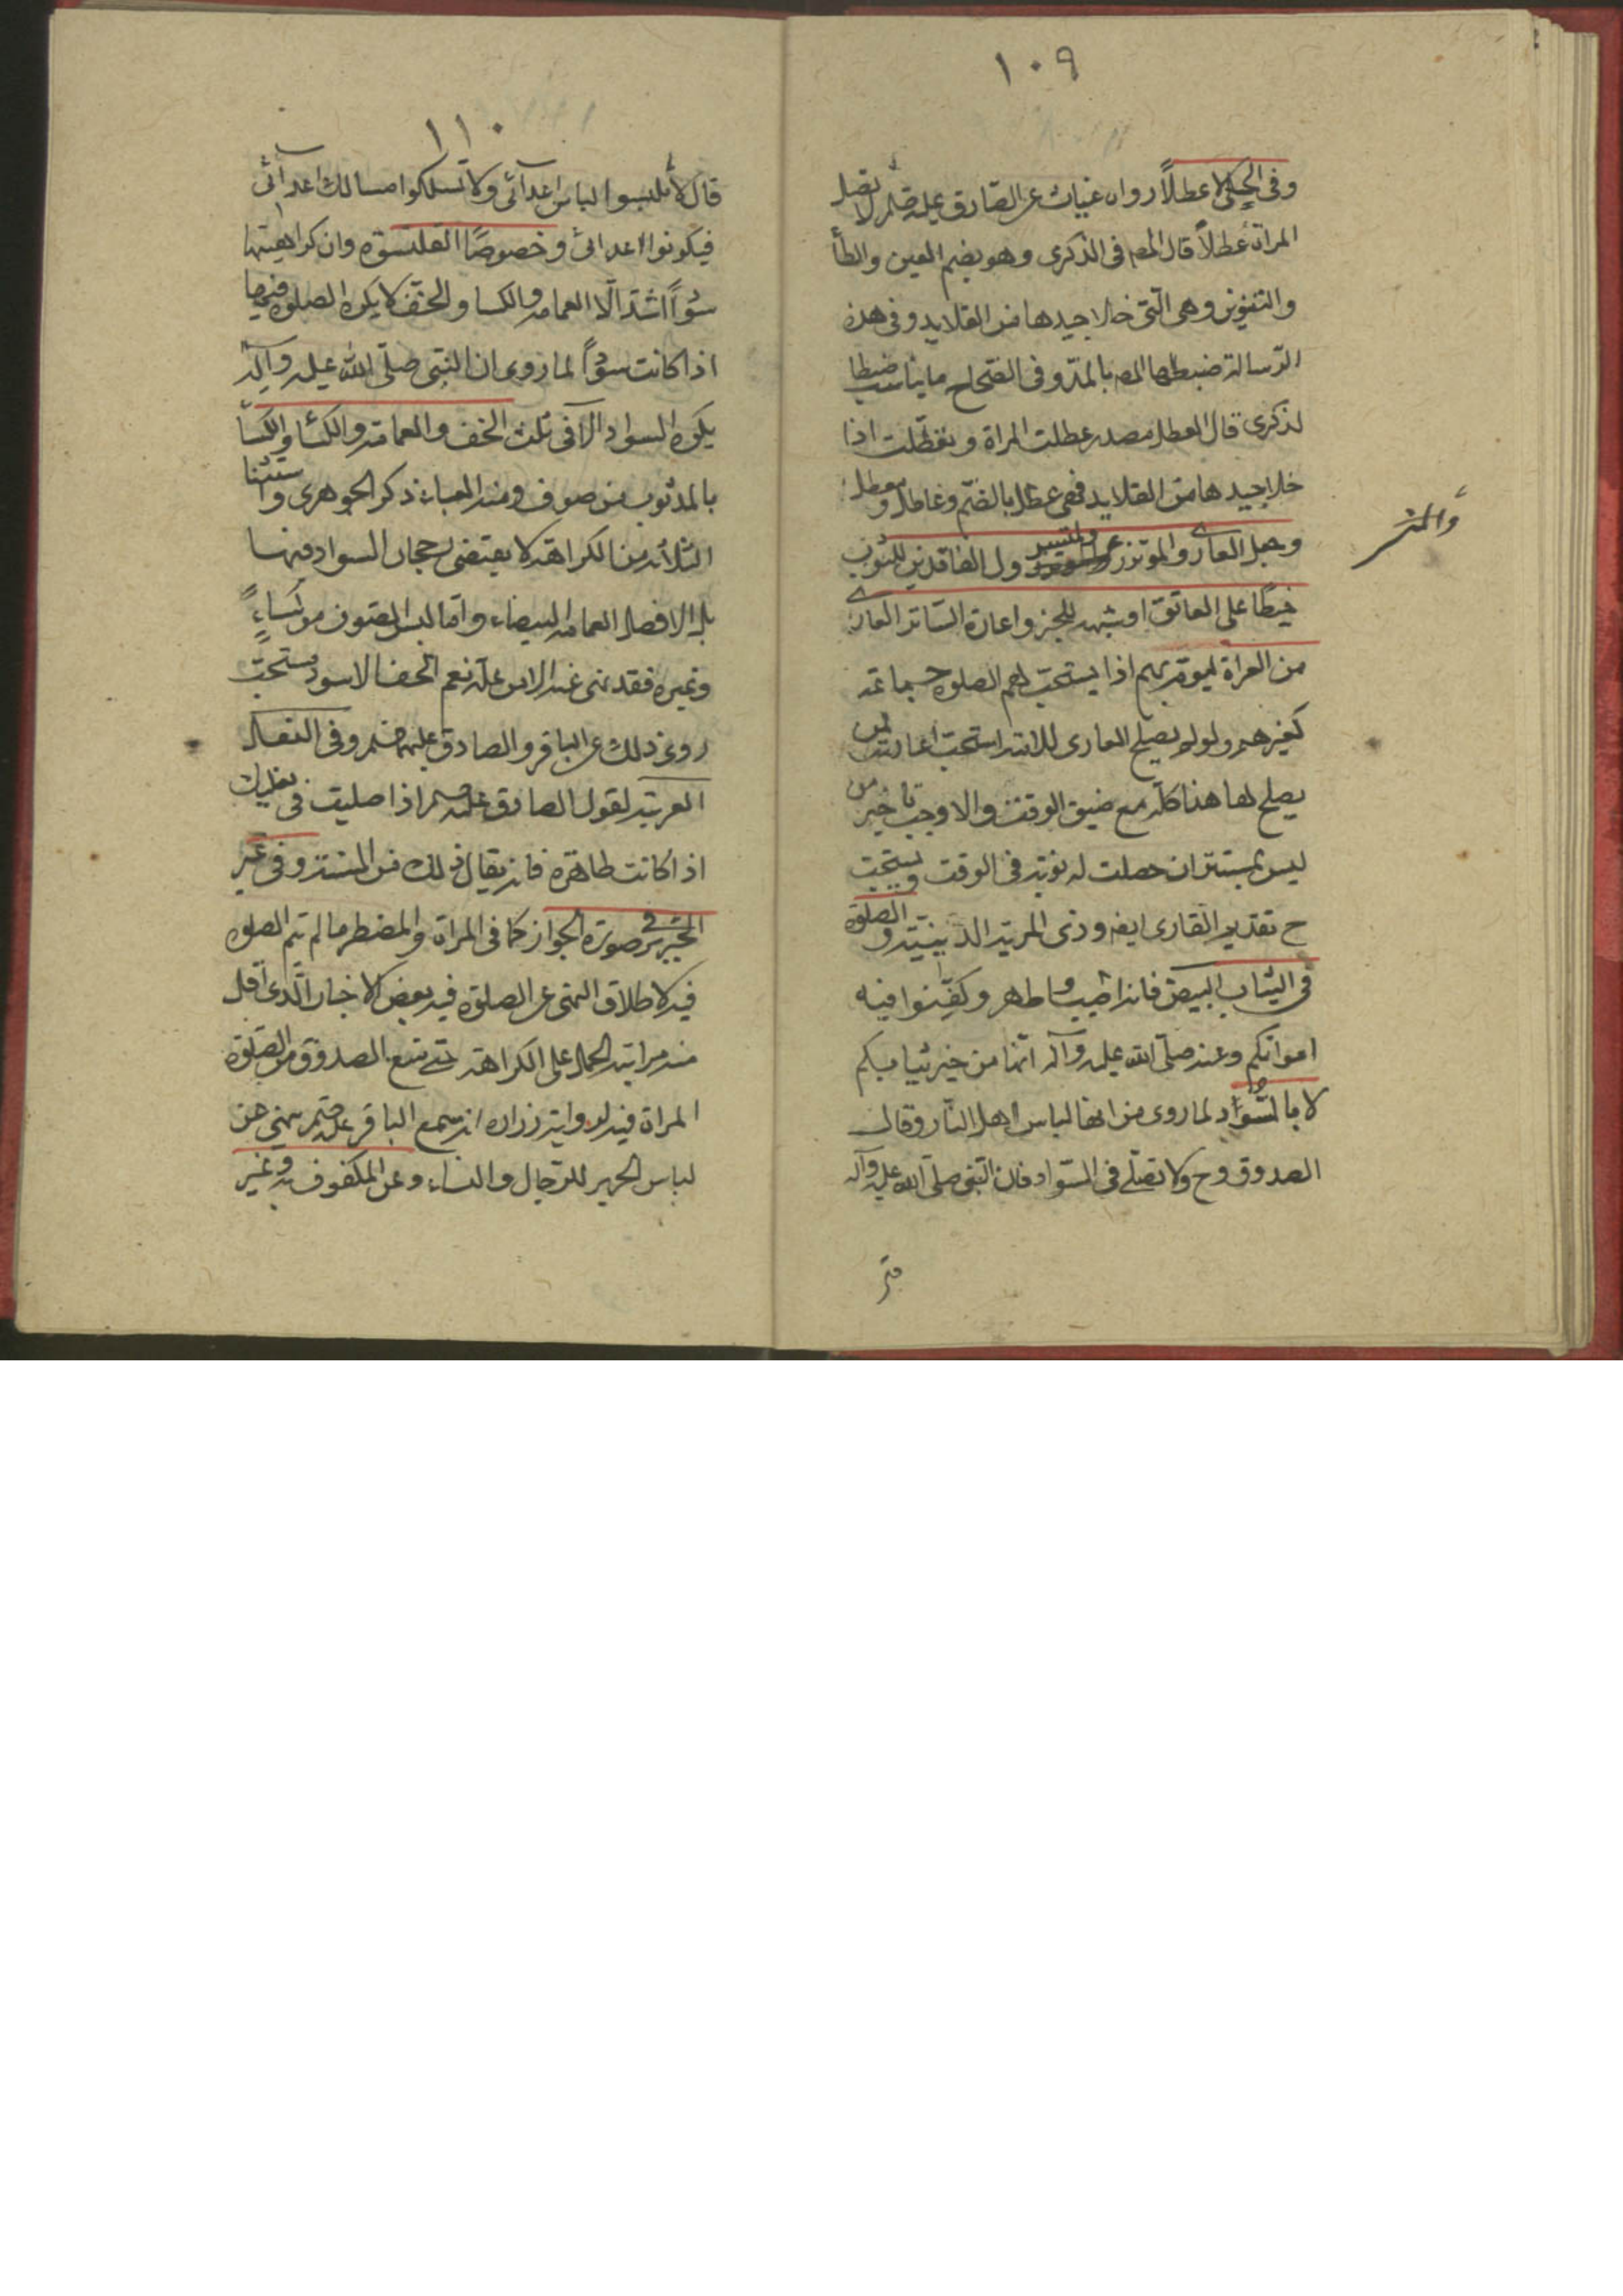 ١٠٩
وفى الحلى لا عطلاً روان غياث عن الصادق عليه لا تصل
المراة عطلاً قال المص فى الذكرى وهو بضم العين والطأ
والتنوين وهى التى خلا جيدها من القلايد وفى هذه
الرسالة ضبطها المص بالمد وفى الصحاح ما يناسب ضبط
لذكرى قال العطل مصدر عطلت المراة وتعطلت اذا
خلا جيدها من القلايد فهى عطل بالضم وعاطل ومعطل
وجعل العارى والموتزر والمتسرول الفاقدين للثوب
خيطًا على العاتق او شبهه للخبر واعارة الساتر العارى
من العراة ليوم بهم اذا يستحب لهم الصلوة جماعة
كغيرهم ولو لم يصلح العارى للامامة استحب اعارته لمن
يصلح لها هذا كله مع ضيق الوقت والا وجب تاخير من
ليس بمستتر ان حصلت له نوبة فى الوقت ويستحب
ح تقديم القارى ايض وذى المزية الدينية والصلوة
فى الثياب البيض فانه اطيب واطهر وكفنوا فيه
امواتكم وعنه صلى الله عليه وآله انها من خير ثيابكم
لا بالسواد لما روى من انها لباس اهل النار وقال
الصدوق رح ولا تصلى فى السواد فان النبى صلى الله عليه وآله
والمتسر
١١٠
قال لا تلبسوا لباس اعدآئى ولا تسلكوا مسالك اعدآئى
فيكونوا اعدائى وخصوصًا القلنسوة وان كراهيتها
سودًا اشد الا العمامة والكسا والخف لا يكره الصلوة فيها
اذا كانت سودًا لما روى ان النبى صلى الله عليه وآله
يكره السواد الا فى ثلث الخف والعمامة والكسا والكسآ
بالمد ثوب من صوف ومنه العباء ذكر الجوهرى واستثنا
الثلاثة من الكراهة لا يقتضى رجحان السواد فيها
بل الافضل العمامة البيضاء واما لبس الصوف من كساءٍ
وغيره فقد نهى عنه الا من علة نعم الخف الاسود مستحب
روى ذلك عن الباقر والصادق عليهما وفى النعال
العربية لقول الصادق عليه اذا صليت فى نعليك
اذا كانت طاهرة فانه يقال ذلك من السنة وفى غير
الحرير فى صورة الجواز كما فى المراة والمضطر ما لم يتم الصلوة
فيه لاطلاق النهى عن الصلوة فيه بعض الاخبار الذى اقل
منه مراتبه الحمل على الكراهة حتى منع الصدوق من الصلوة
المراة فيه لرواية زرارة انه سمع الباقر عليه ينهى عن
لباس الحرير للرجال والنساء وعن المكفوف به وغير